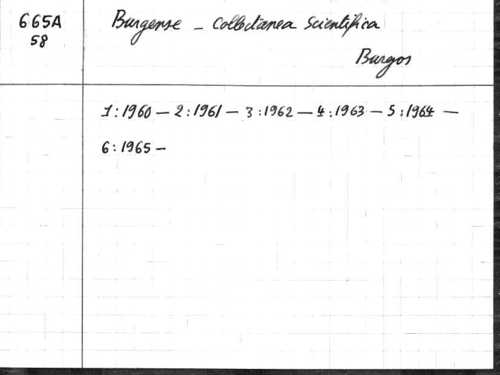 665A
58
Burgense - Collectanea Scientifica
Burgos
1:1960 — 2:1961 — 3:1962 — 4:1963 — 5:1964 —
6:1965 —